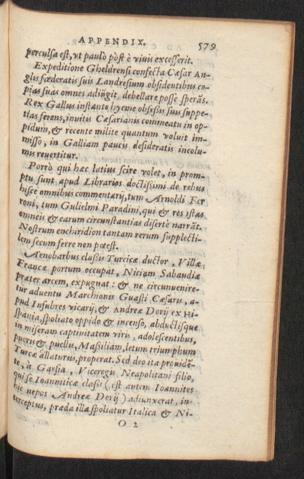 APPENDIX. 579
perculsa est, vt paulò pòst è viuis excesserit.
Expeditione Gheldrensi confecta Cæsar An-
glis fœderatis suis Landresium obsidentibus co-
pias suas omnes adiũgit, debellare posse sperãs.
Rex Gallus instante hyeme obsessis suis suppe-
tias ferens, inuitis Cæsarianis commeatu in op-
pidum, & recente milite quantum voluit im-
misso, in Galliam paucis desideratis incolu-
mis reuertitur.
Porrò qui hæc latius scire volet, in prom-
ptu sunt apud Librarios doctissimi de rebus
hisce omnibus commentarij, tum Arnoldi Fer
roni, tum Gulielmi Paradini, qui & res istas
omneis & earum circunstantias disertè narrãt.
Nostrum enchiridion tantam rerum supplecti-
lem secum ferre non potest.
Aenobarbus classis Turcicæ ductor, Villæ
Francæ portum occupat, Niciam Sabaudiæ
præter arcem, expugnat: & ne circunuenire-
tur aduentu Marchionis Guasti Cæsaru, a-
pud Insubres vicarij, & Andreæ Dorij ex Hi-
spania, spoliato oppido & incenso, abductisque
in miseram captiuitatem viris, adolescentibus,
pueris & puellis, Massiliam, lætum triumphum
Turcæ allaturus, properat. Sed
à Garsia, Viceregis Neapolitani filio,
qui se Ioanniticæ classi (est autem Ioannites
nepos Andreæ Dorij) adiunxerat, in-
terceptus, præda illa spoliatur Italica & Ni-
O 2